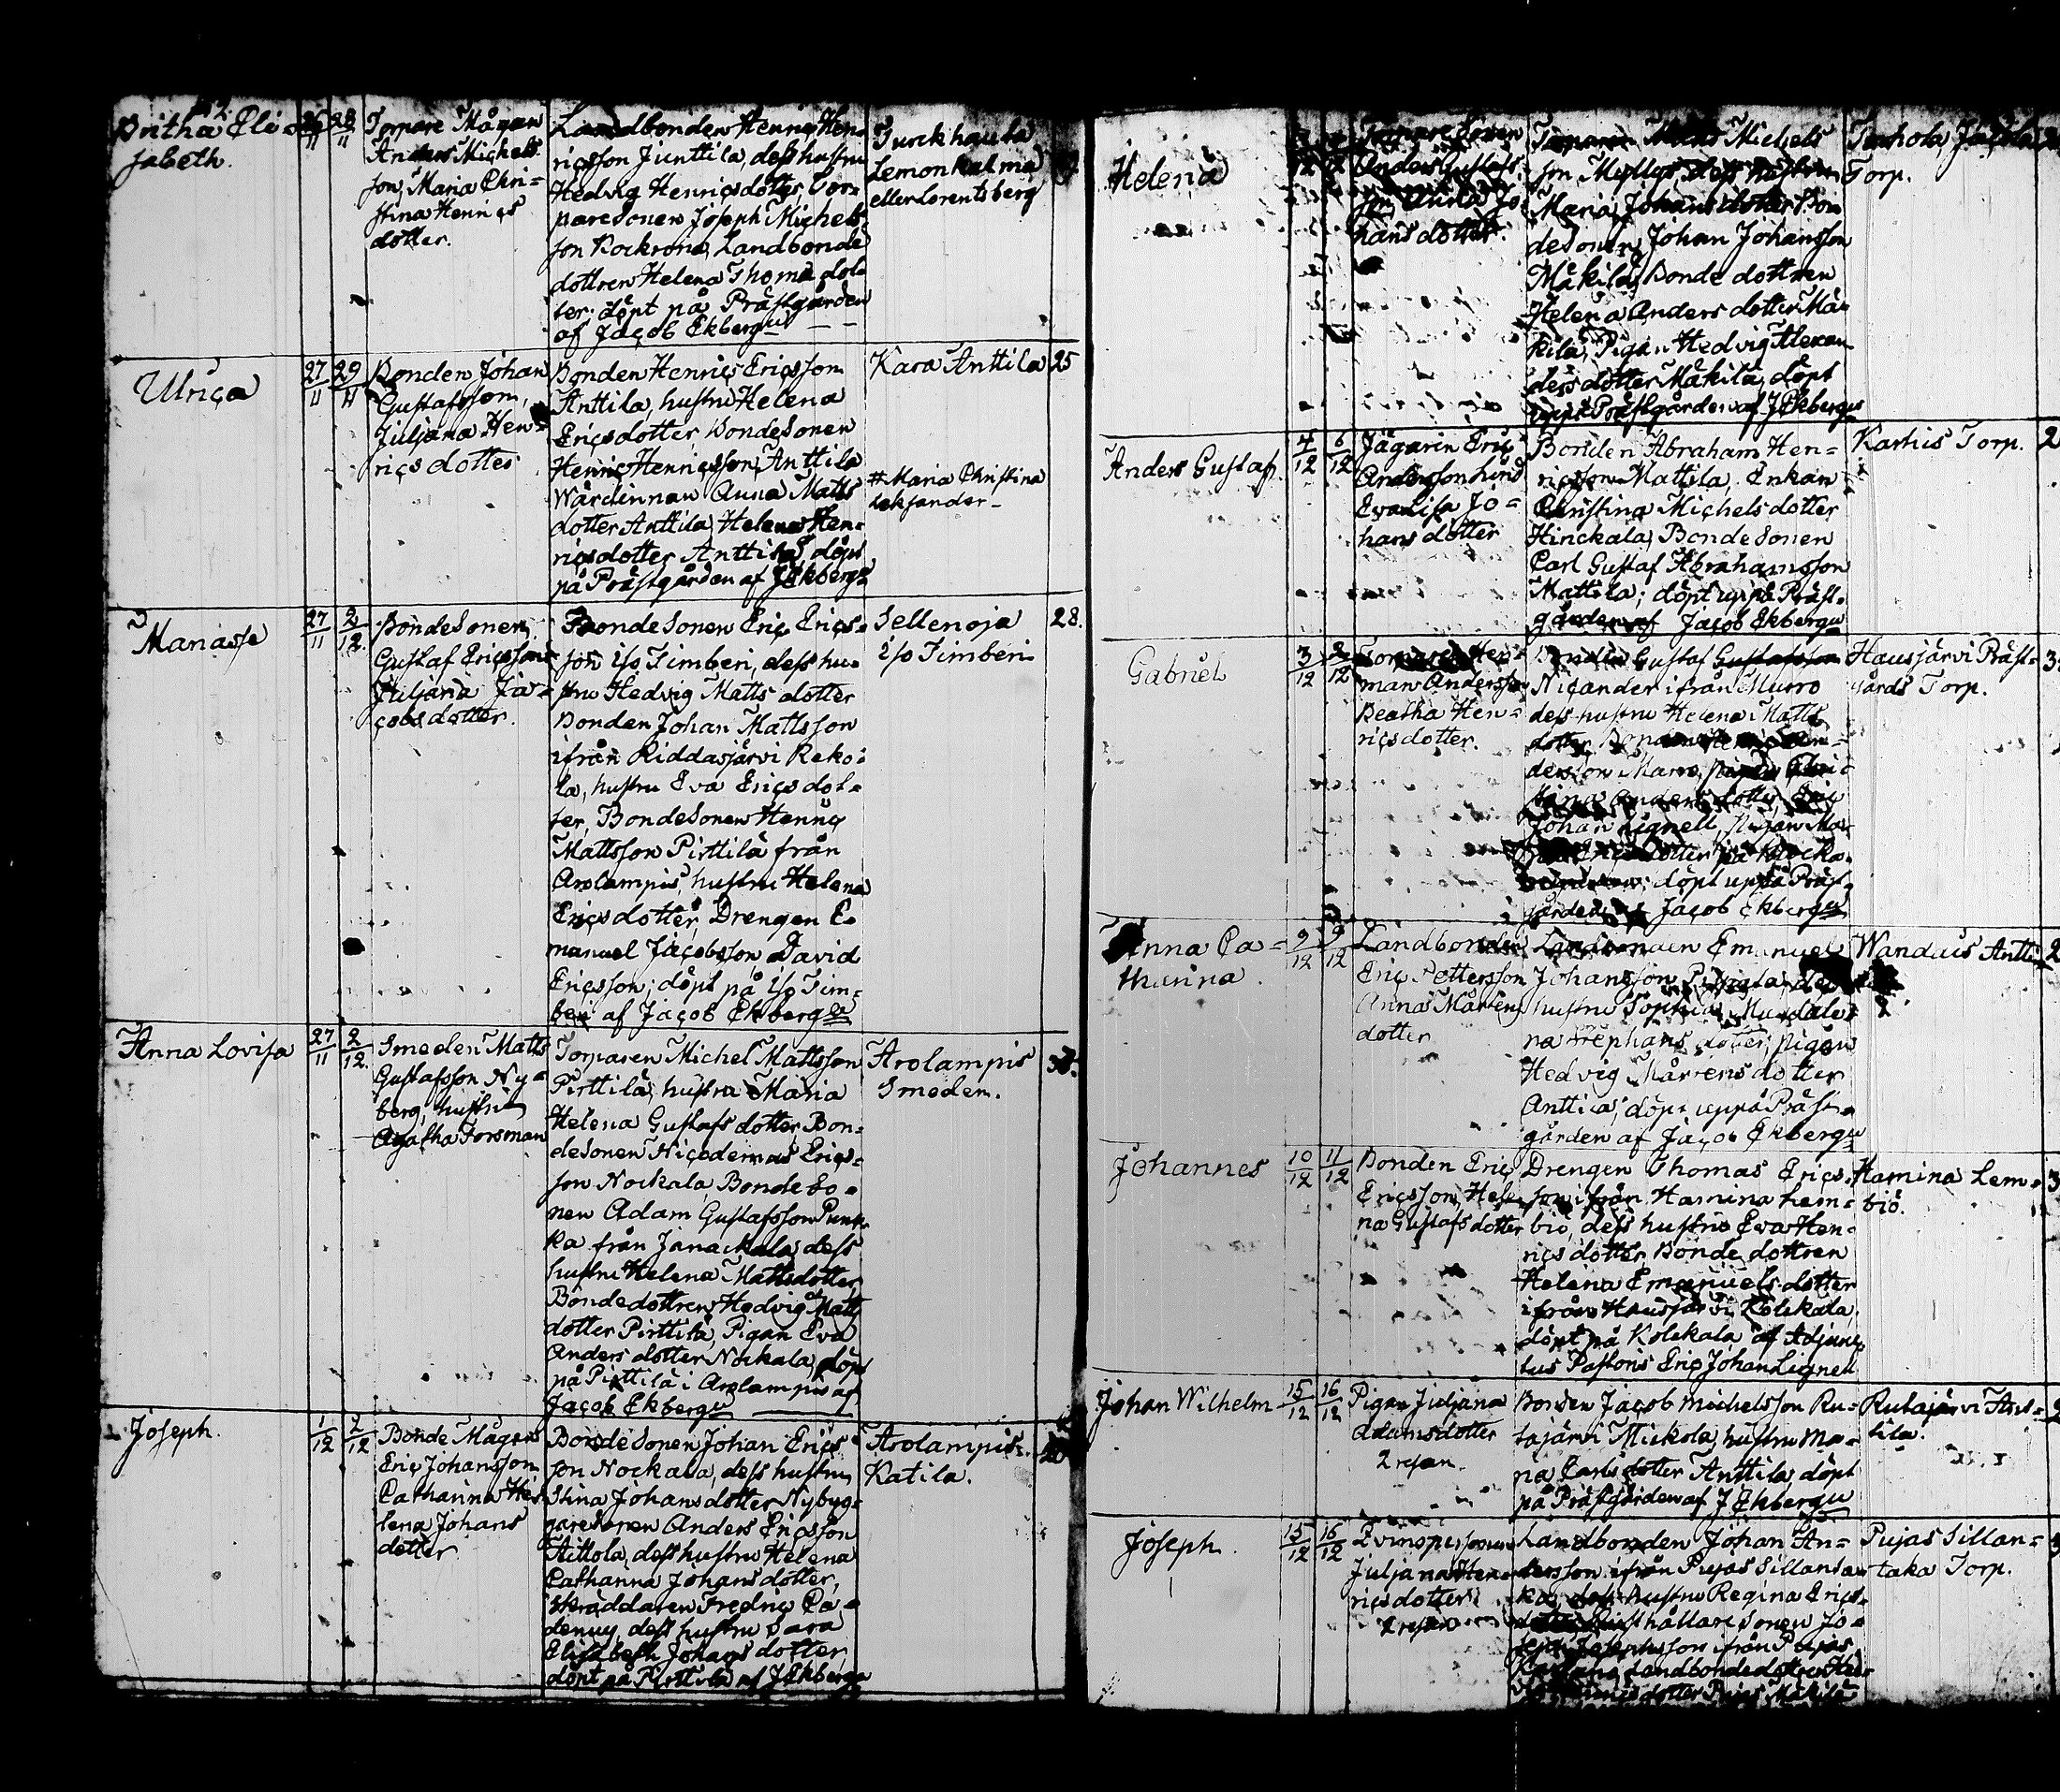 Britha Eli=
sabeth.
26/11 28/11
Torpare Mågen
Anders Michels
son, Maria Chri=
stina Henriçs
dotter.
Landbonden Henriç Hen=
riçsson Junttila, dess hustru
Hedvig Henriçsdotter, Tor=
paresonen Joseph Michels
son Kockrone, Landbonde
dottren Helena Thomæ dot
ter; döpt på Prästgården
af Jacob Ekbergu
Turckhauta
Lemonkalma
eller Lorentsberg
Ulriça
27/11 29/11
Bonden Johan
Gustafsson,
Juljana Hen=
riçs dotter
Bonden Henriç Ericsson
Anttila, hustru Helena
Eriçsdotter BondeSonen
Henriç Henriçsson, Anttila
Wärdinnan Anna Matts
dotter Anttila, Helena Hen=
riçsdotter Anttila, döpt
på Prästgården af J Ekbergu
Kara Anttila
# Maria Christina
Leksander
25
Manasse
27/11 2/12
BondeSonen
Gustaf Ericsson
Juljana Ja=
çobsdotter.
BondeSonen Eriç Eriçs=
son i/o Timberi, dess hu=
stru Hedvig Matts dotter
Bonden Johan Mattsson
ifrån Riddasjärvi Reko=
la, hustru Eva Eriçs dot=
ter, BondeSonen Henriç
Mattsson Pirttilä från
Arolampis, hustru Helena
Eriçsdotter, Drengen E=
manuel Jaçobsson, David
Ericsson; döpt på i/o Tim=
beri af Jaçob Ekbergu
Sellenoja
i/o Timberi
28.
Anna Lovisa
27/11 2/12
Smeden Matts
Gustafsson Ny=
berg, hustru
Agatha Forsman
Torparen Michel Mattsson
Pirttilä, hustru Maria
Helena Gustafs dotter Bon=
deSonen Niçodemus Eriçs=
son Nockala, Bonde So=
nen Adam Gustafsson Punk=
ka från Janackala, dess
hustru Helena Mattsdotter
Bondedottren Hedvig Matts
dotter Pirttilä, Pigan Eva
Anders dotter Nockala, döpt
på Pirttilä i Arolampis af
Jacob Ekbergu
Arolampis
Smeden.
Joseph.
1/12 2/12
Bonde Mågen
Eriç Johansson
Catharina He=
lena Johans
dotter.
BondeSonen Johan Eriçs
son Nockala, dess hustru
Stina Johansdotter, Nybyg=
garesonen Anders Ericsson
Aittola, dess hustru Helena
Catharina Johansdotter,
Skräddaren Fredriç Ca=
denuy, dess hustru Sara
Elisabeth Johans dotter,
döpt på Pirttilä af J Ekbergu
Arolampis
Katila.
Helena
Anders Gustafs
son, Anna Jo
hans dotter.
Matts Michels
son Myllys, dess hustru
Maria Johansdotter Bon
deSonen Johan Johansson
Mäkilä, Bonde dottren
Helena Anders dotter Mä=
kilä, Pigan Hedvig Alexan
ders dotter Mäkilä, döpt
uppå Prästgården af J Ekbergu
Torp.
Anders Gustaf
4/12 6/12
Jägarin Eriç
Andersson
Evalisa Jo=
hans dotter
Bonden Abraham Hen=
riçsson Mattila, Enkan
Christina Michelsdotter
Hinckala, BondeSonen
Carl Gustaf Abrahamsson
Mattila; döpt uppå Präst=
gården af Jaçob Ekbergu
Karhis Torp.
Gabriel
3/12
Hen=
man Andersson
Beatha Hen=
riçsdotter.
Gustaf Gustafsson
Niçander ifrån Murro
dess hustru Helena Matts
dotter,
Johan Lignell, Pigan Ma=
döpt uppå Präst=
gården af Jaçob Ekbergu
Hausjärvi Präst=
gårds Torp.
Anna Ca=
tharina
9/12 9/12
Landbonden
Eriç Pettersson
Anna Mårtens
dotter
Landbonden Emanuel
Johansson
hustru Sophia Magdale=
na Stephans dotter, pigan
Hedvig Mårtensdotter
Anttila, döpt uppå Präst=
gården af Jaçob Ekbergu
Wandais Antti
Johannes
10/12 11/12
Bonden Eriç
Ericsson, Hele
na Gustafsdotter
Drengen Thomas Eriçs
son ifrån Hamina Lem=
biö, dess hustru Eva Hen=
riçs dotter, Bonde dottren
Helena Emanuels dotter
ifrån Hausjärvi Kolckala,
döpt på Kolckala af Adjunc
tus Pastoris Eriç Johan Lignell
Hamina Lem=
biö.
Johan Wilhelm
15/12 16/12
Pigan Juljana
Adamsdotter
2 resan.
Bonden Jaçob Michelsson Ru=
tajärvi Mickola, hustru Ma=
ria Carlsdotter Anttila, döpt
på Prästgården af J Ekbergu
Rutajärvi Ant=
tila.
Joseph.
15/12 16/12
Qvinspersonen
Juljana Hen=
riçsdotter
2 resan
Landbonden Johan An=
dersson ifrån Pujas Sillanta
ka, dess hustru Regina Eriçs=
hållare Sonen Jo=
seph Josephsson ifrån Pujas
Landbondedottren Hed
dotter Pujas Mäkilä
Pujas Sillan=
taka Torp.